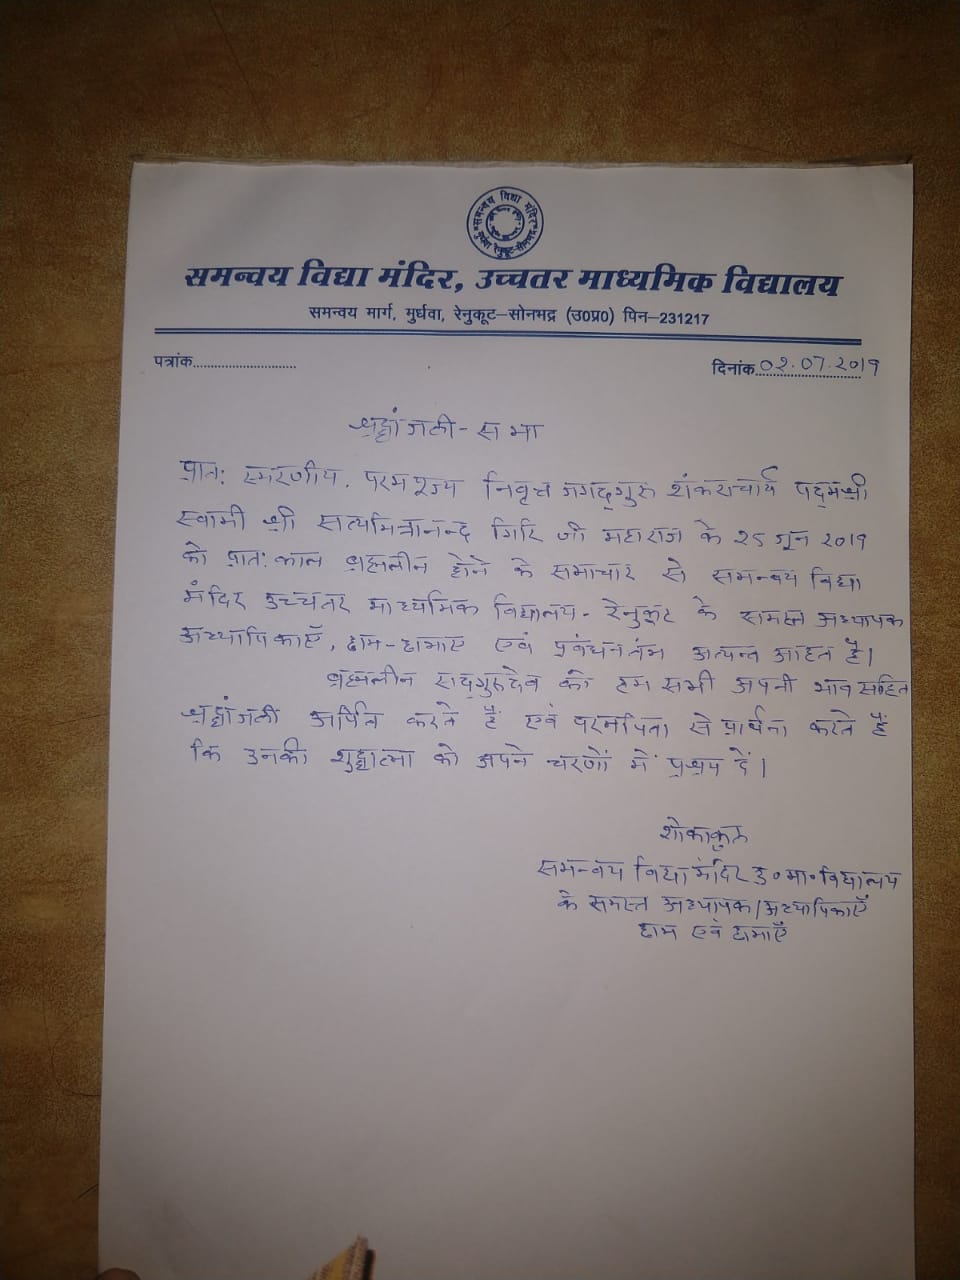 समन्वय विद्या मंदिर
मुर्धवा रेनुकूट-सोनभद्र
समन्वय विद्या मंदिर, उच्चतर माध्यमिक विद्यालय
समन्वय मार्ग, मुर्धवा, रेनुकूट–सोनभद्र (उ0प्र0) पिन–231217
पत्रांक............................
दिनांक 02.07.2019
श्रद्धांजली-सभा
प्रात: स्मरणीय, परमपूज्य निवृत्त जगद्गुरु शंकराचार्य पद्मश्री
स्वामी श्री सत्यमित्रानन्द गिरि जी महाराज के 25 जून 2019
को प्रात: काल ब्रह्मलीन होने के समाचार से समन्वय विद्या
मंदिर उच्चतर माध्यमिक विद्यालय- रेनुकूट के समस्त अध्यापक
अध्यापिकाएँ, छात्र-छात्राएं एवं प्रबंधनतंत्र अत्यन्त आहत है।
ब्रह्मलीन सद्गुरुदेव को हम सभी अपनी भाव सहित
श्रद्धांजली अर्पित करते हैं एवं परमपिता से प्रार्थना करते हैं
कि उनकी शुद्धात्मा को अपने चरणों में प्रश्रय दें।
शोकाकुल
समन्वय विद्या मंदिर उ॰मा॰विद्यालय
के समस्त अध्यापक/अध्यापिकाएँ
छात्र एवं छात्राएँ